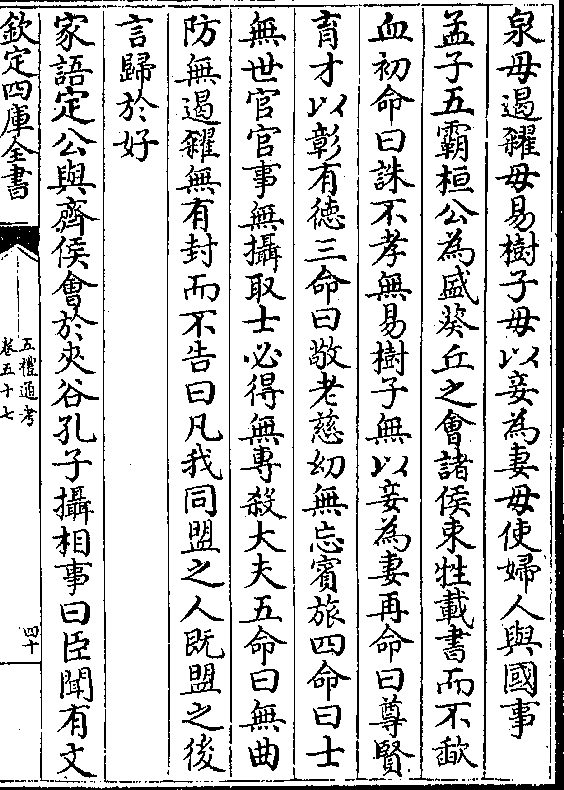 泉毋遏糴毋易樹子毋以妾為妻毋使婦人與國事
孟子五霸桓公為盛葵丘之會諸侯束牲載書而不歃
血初命曰誅不孝無易樹子無以妾為妻再命曰尊賢
育才以彰有德三命曰敬老慈幼無忘賓旅四命曰士
無世官官事無攝取士必得無專殺大夫五命曰無曲
防無遏糴無有封而不告曰凡我同盟之人既盟之後
言歸於好
家語定公與齊侯會於夾谷孔子攝相事曰臣聞有文
欽定四庫全書
五禮通考
卷五十七
四十